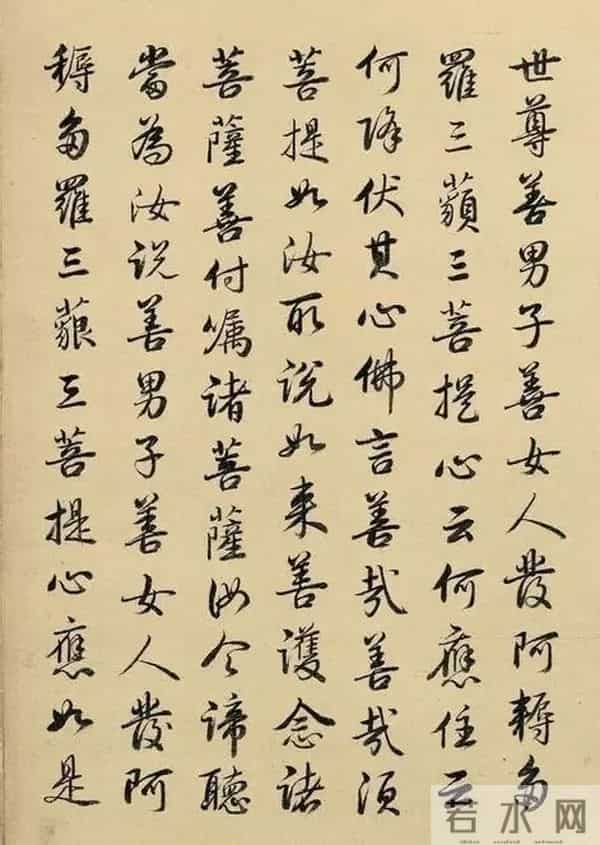 世尊善男子善女人發阿耨多
羅三藐三菩提心云何應住云
何降伏其心佛言善哉善哉須
菩提如汝所說如來善護念諸
菩薩善付囑諸菩薩汝今諦聽
當為汝說善男子善女人發阿
耨多羅三藐三菩提心應如是
若水网